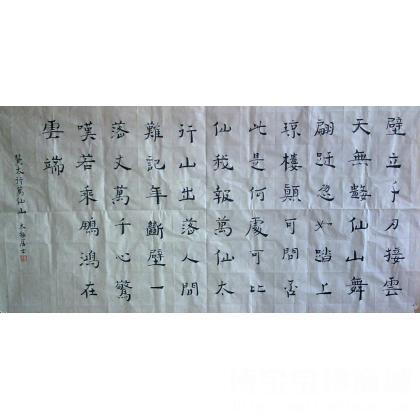 壁立千刃接雲
天無數仙山舞
翩跹忽如踏上
琼樓顛可問否
此是何處可比
仙我報萬仙太
行山出落人間
難記年斷壁一
落丈萬千心驚
嘆若乘鵬鴻在
雲端
贊太行萬仙山 居士